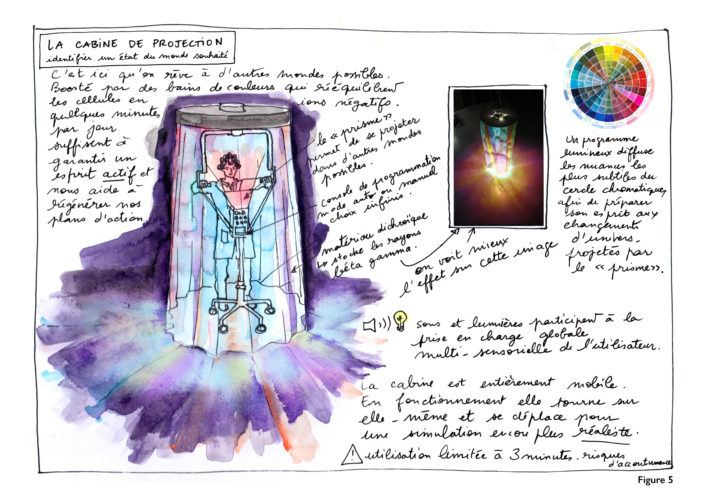 LA CABINE DE PROJECTION
identifier un état du monde souhaité
C'est ici qu'on rêve à d'autres mondes possibles.
Boosté par des bains de couleurs qui rééquilibrent
les cellules en ions négatifs.
quelques minutes
par jour
suffisent à
garantir un
esprit actif et
nous aide à
régénérer nos
plans d'action.
le « prisme »
permet de se projeter
dans d'autres mondes
possibles.
console de programmation
mode auto ou manuel
choix infinis.
matériau dichroïque
stocke les rayons
béta gamma.
on voit mieux
l'effet sur cette image
Un programme
lumineux diffuse
les nuances les
plus subtiles du
cercle chromatique,
afin de préparer
son esprit aux
changements
d'univers.
projetés par
le « prisme ».
sons et lumières participent à la
prise en charge globale
multi-sensorielle de l'utilisateur.
La cabine est entièrement mobile.
En fonctionnement elle tourne sur
elle-même et se déplace pour
une simulation encore plus réaliste.
utilisation limitée à 3 minutes. risques
d'accoutumance
Figure 5